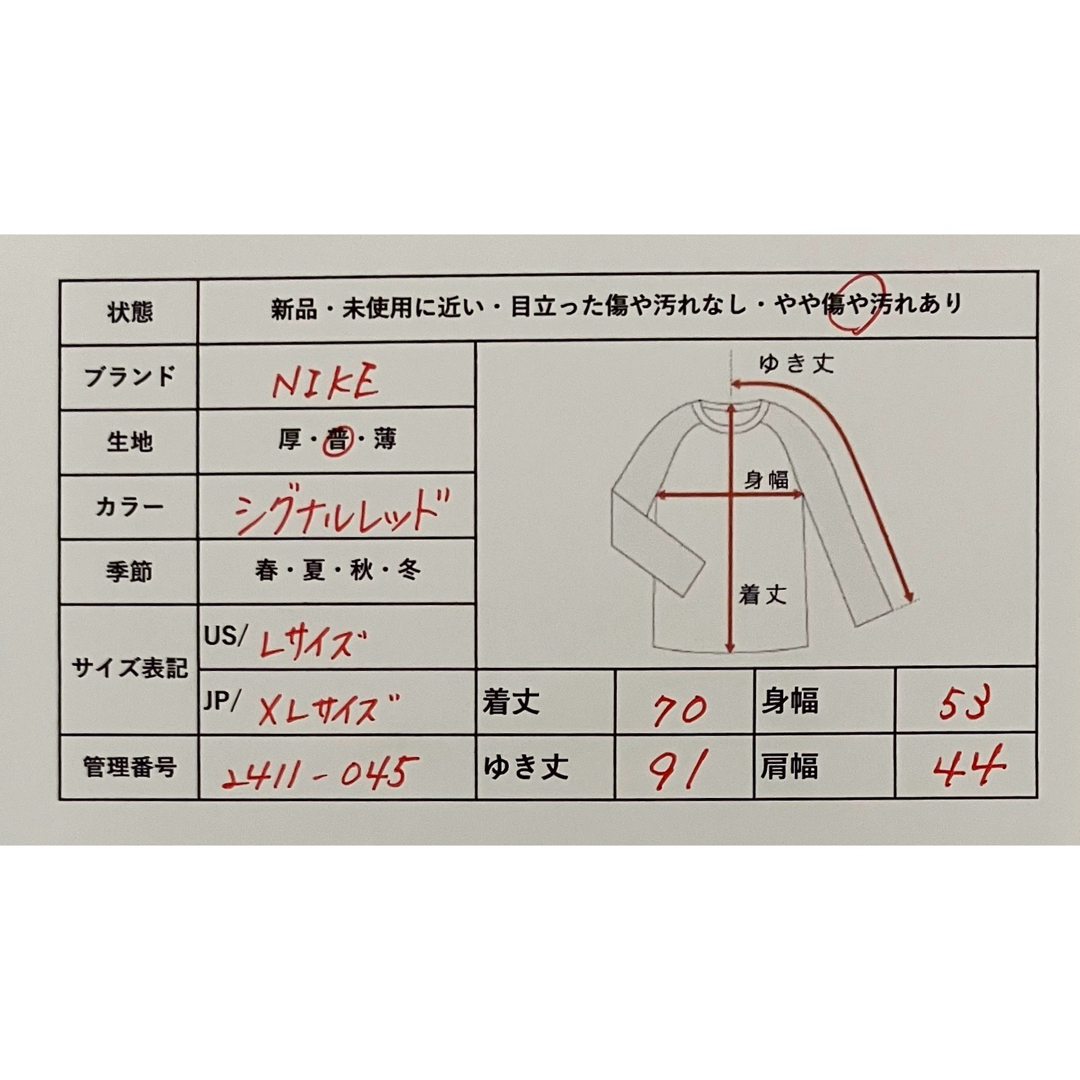 状態 新品・未使用に近い・目立った傷や汚れなし・やや傷や汚れあり
ブランド NIKE
生地 厚・普・薄
カラー シグナルレッド
季節 春・夏・秋・冬
サイズ表記
US/ Lサイズ
JP/ XLサイズ
管理番号 2411-045
ゆき丈
身幅
着丈
着丈 70 身幅 53
ゆき丈 91 肩幅 44